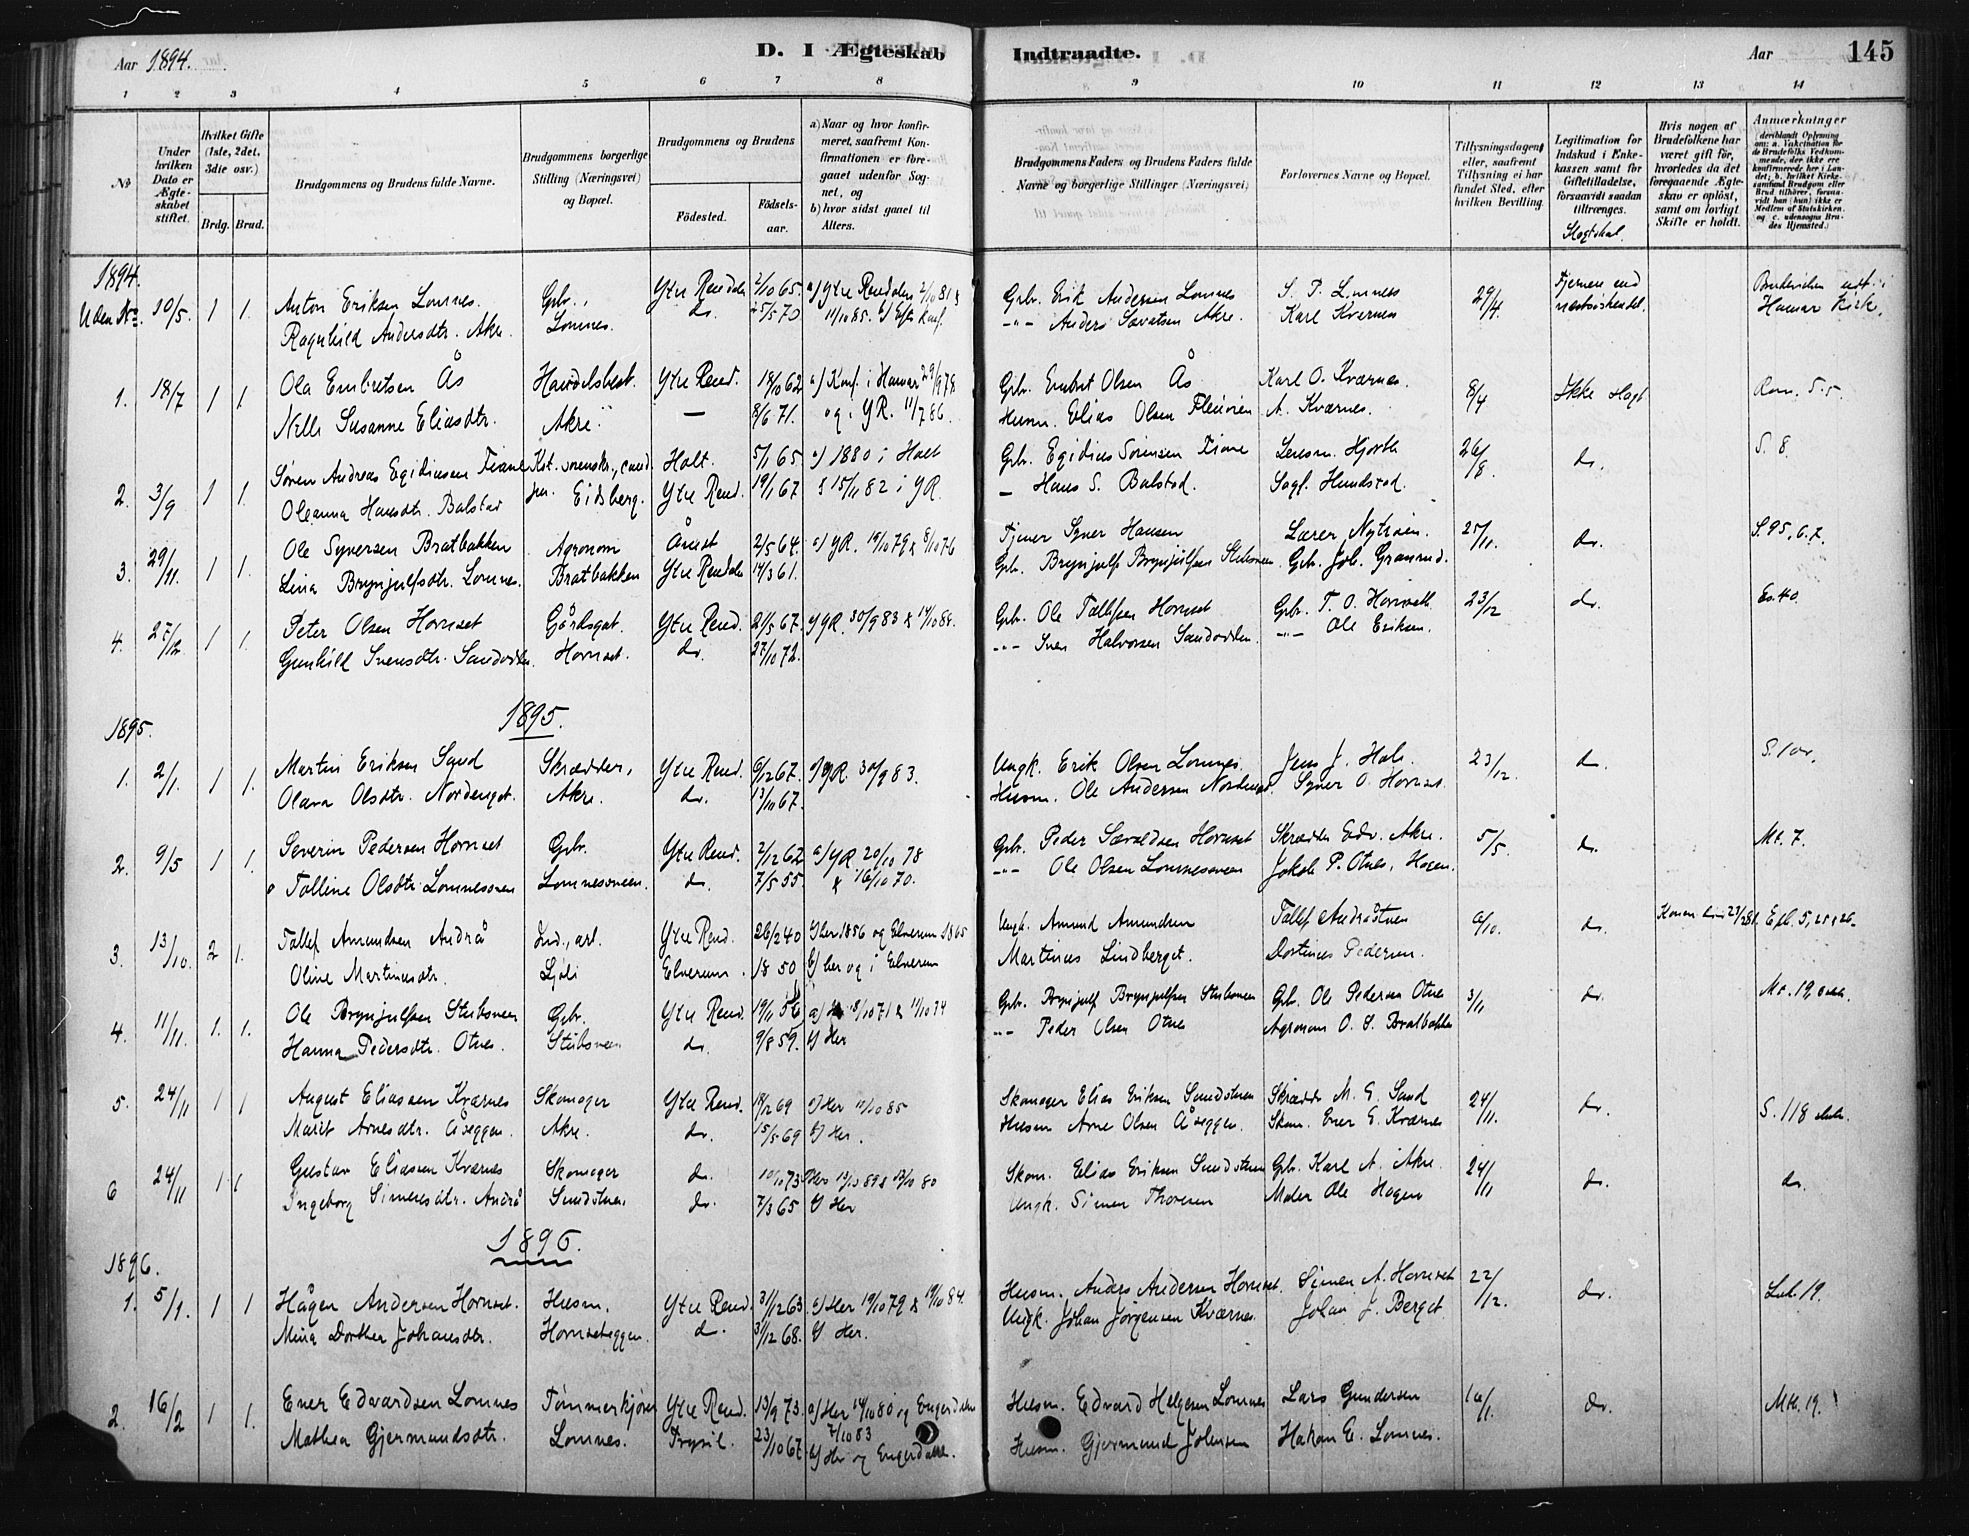 Aar 1894.
D. I Ægteskab Indtraadte.
Aar 145
1 2 3 4 5 6 7 8 9 10 11 12 13 14
No
Under hvilken Dato er Ægteskabet stiftet.
Hvilket Gifte (1ste, 2det, 3die osv.)
Brdg. Brud.
Brudgommens og Brudens fulde Navne.
Brudgommens borgerlige Stilling (Næringsvei) og Bopæl.
Brudgommens og Brudens
Fødested.
Fødselsaar.
a) Naar og hvor konfirmeret, saafremt Konfirmationen er foregaaet udenfor Sognet, og
b) hvor sidst gaaet til Alters.
Brudgommens Faders og Brudens Faders fulde Navne og borgerlige Stillinger (Næringsvei)
Forlovernes Navne og Bopæl.
Tillysningsdagen, eller, saafremt Tillysning ei har fundet Sted, efter hvilken Bevilling
Legitimation for Indskud i Enkekassen samt for Giftetilladelse, forsaavidt saadan tiltrænges.
Hvis nogen af Brudefolkene har været gift før, hvorledes da det foregaaende Ægteskab er opløst, samt om lovligt Skifte er holdt.
Anmærkninger
1894.
Uden No. 10/5. 1 1. Anton Eriksen Lomnes. Gbr., Ytre Rendalen 2/10 65. Gbr. Erik Andersen Lomnes 29/4
Ragnhild Andersdtr. Akre. Lomnes. do. Anders Sævatsen Akre. Karl Kværnes Hamar Kirke.
1. 18/7 1 1. Ola Embretsen Ås Handelsbest. Ytre Rend. 18/10 62 a) Konf. i Hamar 29/9 78 Gbr. Embret Olsen Ås Karl O. Kværnes. 8/4 Ikke slægt
Nelle Susanne Eliasdtr. Akre. — 8/6 71. og i YR. 11/7 86. Husm. Elias Olsen A. Kværnes.
2. 3/9 1 1. Søren Andreas Egidiussen Fiane Holt. 5/1 65 a) 1880 i Holt Gbr. Egidius Sørensen Fiane Lensm. Hjorth 26/8 do. S. 8.
Oleanna Hansdtr. Balstad Eidsberg. Ytre Rend. 19/1 67 & 15/11 82 i YR. — Hans S. Balstad. Sagf. Hundstad.
3. 29/11. 1 1. Ole Syversen Bratbakken Agronom 2/5 64. a) YR. 19/10 79 & 8/10 76 Tjener Syver Hansen Lærer Nytrøen. 25/11. do. S. 95, 6.7.
Lina Brynjulfsdtr. Lomnes. Bratbakken Ytre Rendalen 14/3 61. Gbr. Brynjulf Brynjulfsen Stubsveen Gbr. Joh. Granrud.
4. 27/12 1 1. Peter Olsen Hornset Gårdsgut. Ytre Rend. 21/5 67. YR. 30/9 83 & 14/10 88. Gbr. Ole Tollefsen Hornset Gbr. T. O. Hornseth 23/12 do. Es. 40
Gunhild Svensdtr. Sandodden. Hornset. do. 27/10 72. Sven Halvorsen Sandodden. Ole Eriksen.
1895.
1895.
1. 2/1. 1 1. Martin Eriksen Sand Skrædder, Ytre Rend. 9/12 67. a) YR. 30/9 83. Ungk. Erik Olsen Lomnes. Jens J. Hole. 23/12. do.
Olava Olsdtr. Nordenget. Akre. do. 13/10 67. Husm. Ole Andersen Nordenget. Syver O. Hornset.
2. 9/5 1 1. Severin Pedersen Hornset Gbr. Ytre Rend. 2/12 62 a) YR 20/10 78 Gbr. Peder Sævaldsen Hornset Skrædder Edv. Akre. 5/5. do. Mt. 7.
Talline Olsdtr. Lomnessveen Lomnessveen. do. 7/5 55. & 16/10 70. Ole Olsen Lomnessveen Jakob P. Otnes, Hagen.
3. 13/10. 2 1. Tollef Amundsen Andrå Ind., arb. Ytre Rend. 26/2 40 a) Her 1856 og Elverum 1865 Ungk. Amund Amundsen Tollef Andråstuen 6/10. do. Konen
Oline Martinusdtr. Sjøli Elverum. 18 50 b) her og i Elverum Martinus Lindberget. Dortinus Pedersen.
4. 11/11. 1. 1. Ole Brynjulfsen Stubsveen Gbr. Ytre Rend. 19/11 56 8/10 71 & 11/10 74 Gbr. Brynjulf Brynjulfsen Stubsveen Gbr. Ole Pedersen Otnes 3/11 do. Mt. 19,
Hanna Pedersdtr. Otnes. Stubsveen do. 9/8 59. b) Her Peder Olsen Otnes Agronom O. S. Bratbakken
5. 24/11 1 1 August Eliassen Kværnes Skomager Ytre Rend. 18/12 69 a) Her 11/10 85 Skomager Elias Eriksen Sundstuen Skrædder M. E. Sand 24/11. do. S. 118
Marit Arnesdtr. Åseggen. Akre. do. 15/5 69 b) Her. Husm Arne Olsen Åseggen. Skom. Ener E. Kværnes
6 24/11 1. 1 Gustav Eliassen Kværnes Skomager do. 10/10 73 Her 13/10 89 & 17/10 80 Skom. Elias Eriksen Sundstuen Gbr. Karl A. Akre. 24/11 do. do.
Ingeborg Simensdtr. Andrå Sundstuen do. 7/3 65 b) Her Ungk. Simen Thoresen Maler Ole Hagen
1896.
1896.
1. 5/1. 1 1 Hågen Andersen Hornset. Husm. Ytre Rend. 31/12 63. a) Her 19/10 79 & 19/10 84. Husm. Anders Andersen Hornset. Simen A. Hornset 22/12. do. Luk. 19.
Mina Dorthea Johansdtr. Hornseteggen. do. 3/12 68. b) Her. Ungk. Johan Jørgensen Kværnes Johan J. Berget
2. 16/2 1 1. Ener Edvardsen Lomnes Tømmerkjører Ytre Rend. 13/9 73. a) Her 14/10 80 og Engerdalen 7/10 83 Husm. Edvard Helgesen Lomnes Lars Gundersen 16/1. do. Mth. 19.
Mathea Gjermundsdtr. Lomnes. Trysil. 23/10 67. b) Her og Engerdalen. Husm. Gjermund Johnsen Hakon E. Lomnes.